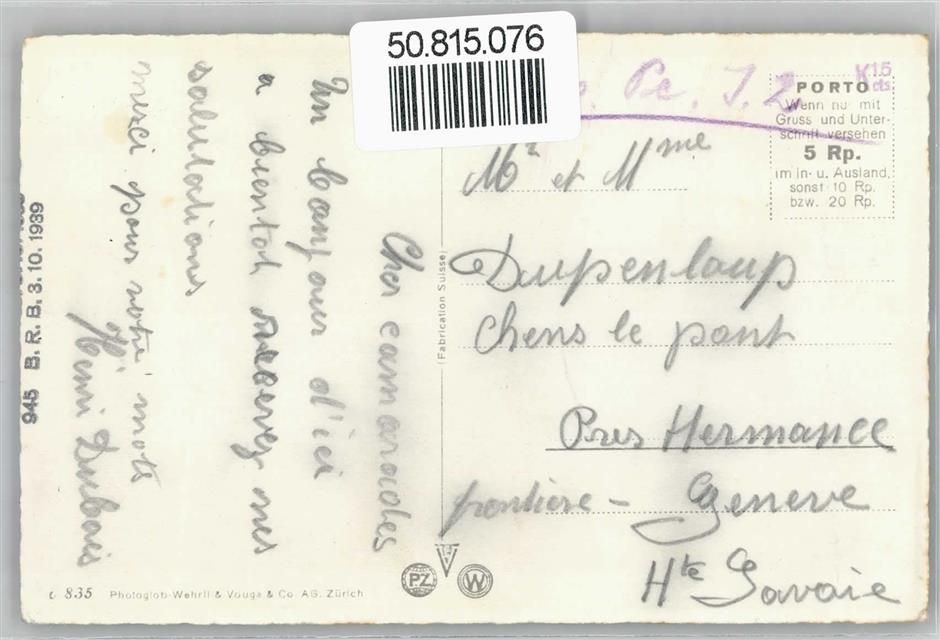 50.815.076
Pc. J. 2
K15
cts
PORTO
Wenn nur mit
Gruss und Unter-
schrift versehen
5 Rp.
im in- u. Ausland,
sonst 10 Rp.
bzw. 20 Rp.
Mr et Mme
Dupenloup
Chens le pont
Pres Hermance
frontiere - Geneve
Hte Savoie
Cher camarades
Un bonjour d'ici
a bientot recevez mes
salutations
merci pour votre mots
Henri Dubois
(Fabrication Suisse)
945 B. R. B. 3. 10. 1939
c 835 Photoglob-Wehrli & Vouga & Co AG. Zürich
PZ
W